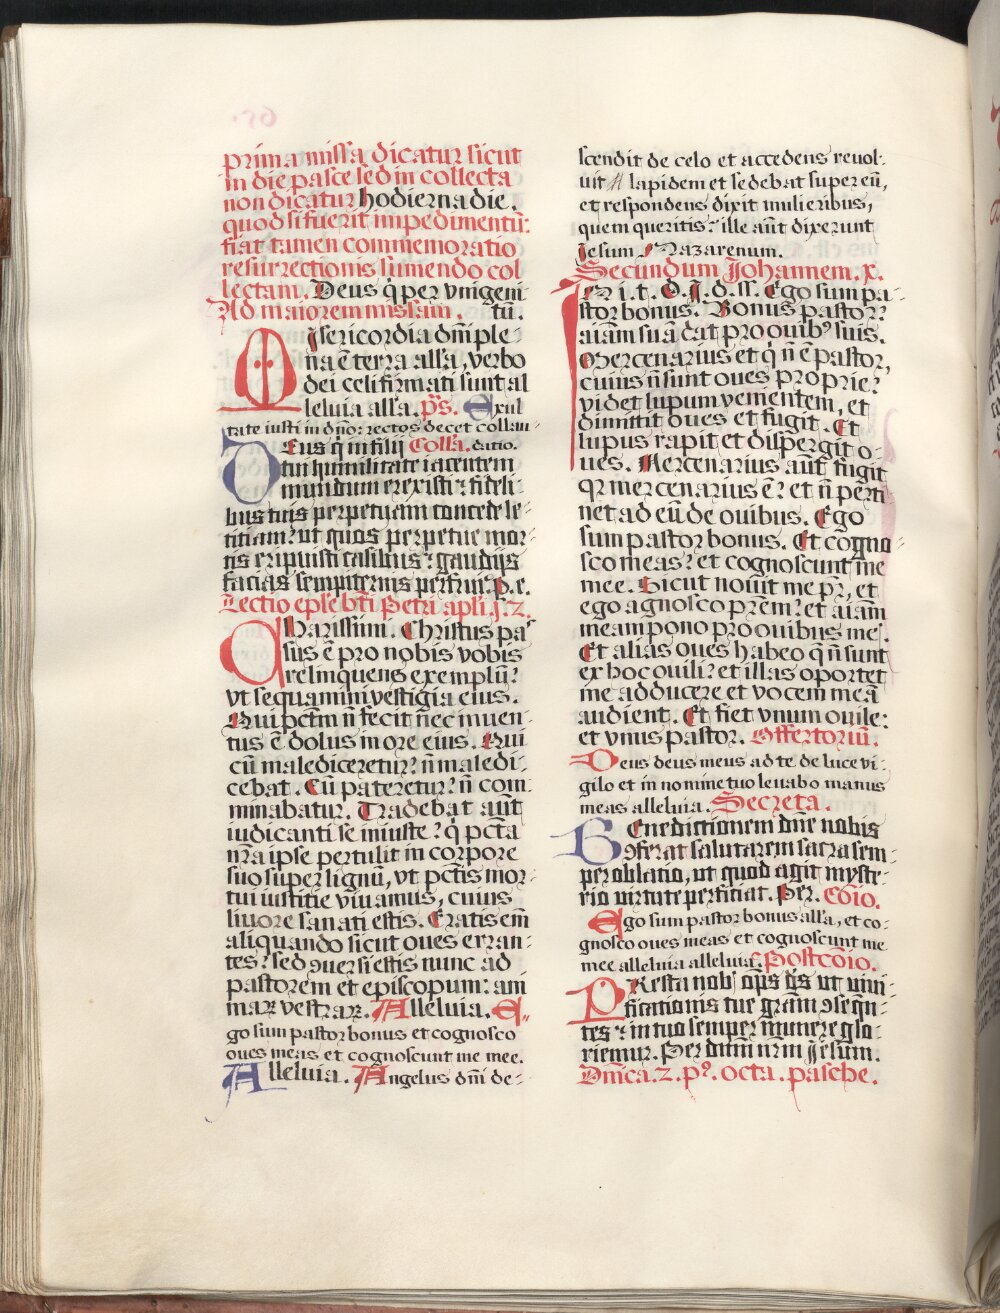 prima missa dicatur sicut
in die pasce sed in collecta
non dicatur hodierna die.
quod si fuerit impedimentū:
fiat tamen commemoratio
resurrectionis sumendo col
lectam. Deus q̇ per vnigeni
Ad maiorem missam. tū.
Misericordia dn̄i ple-
na ē terra all'a, verbo
dei celi firmati sunt al
leluia all'a. p̄s. Exul
tate iusti in dn̄o: rectos decet collau-
Deus q̇ in filij Coll'a. datio.
tui humilitate iacentem
mundum erexisti: fideli-
bus tuis perpetuam concede le-
titiam: ut quos perpetue mor-
tis eripuisti casibus: gaudijs
facias sempiternis perfrui. P. e.
Lectio eple bt̄i Petri apl̄i .j. 2.
Charissimi. Christus pa-
sus ē pro nobis vobis
relinquens exemplū:
vt sequamini vestigia eius.
Qui pctm̄ n̄ fecit nec inuen-
tus ē dolus in ore eius. Qui
cū malediceretur: n̄ maledi-
cebat. Cū pateretur: n̄ com-
minabatur. Tradebat aūt
iudicanti se iniuste: q̇ pctā
nr̄a ipse pertulit in corpore
suo super lignū, vt pctīs mor-
tui iustitie viuamus, cuius
liuore sanati estis. Eratis em̄
aliquando sicut oues erran-
tes: sed ɔuersi estis nunc ad
pastorem et episcopum: ani
maꝝ vestraꝝ. Alleluia. E-
go sum pastor bonus et cognosco
oues meas et cognoscunt me mee.
Alleluia. Angelus dn̄i de-
scendit de celo et accedens reuol-
uit lapidem et sedebat super eū,
et respondens dixit mulieribus,
quem queritis: ille aūt dixerunt
Jesum Nazarenum.
Secundum Johannem. x.
In i. t. D. J. d. ss. Ego sum pa-
stor bonus. Bonus pastor:
aīam suā dat pro ouibꝰ suis.
Mercenarius et q̇ n̄ ē pastor,
cuius n̄ sunt oues proprie:
videt lupum venientem, et
dimittit oues et fugit. Et
lupus rapit et dispergit o-
ues. Mercenarius aūt fugit
qꝛ mercenarius ē: et n̄ perti
net ad eū de ouibus. Ego
sum pastor bonus. Et cogno-
sco meas: et cognoscunt me
mee. Sicut nouit me pr̄, et
ego agnosco prēm: et aīam
meam pono pro ouibus meis.
Et alias oues habeo q̄ n̄ sunt
ex hoc ouili: et illas oportet
me adducere et vocem meā
audient. Et fiet vnum ouile:
et vnus pastor. Offertoriū.
Deus deus meus ad te de luce vi-
gilo et in nomine tuo leuabo manus
meas alleluia. Secreta.
Benedictionem dn̄e nobis
ɔferat salutarem sacra sem-
per oblatio, ut quod agit myste-
rio virtute perficiat. Per. Cōio.
Ego sum pastor bonus all'a, et co-
gnosco oues meas et cognoscunt me
mee alleluia alleluia. Postcōio.
Presta nob' op̄s ds̄ ut viui-
ficationis tue gram̄ ɔseqn̄-
tes: in tuo semper munere glo-
riemur. Per dn̄m nr̄m Jesum.
Dn̄ica. 2. pꝰ. octa. pasche.